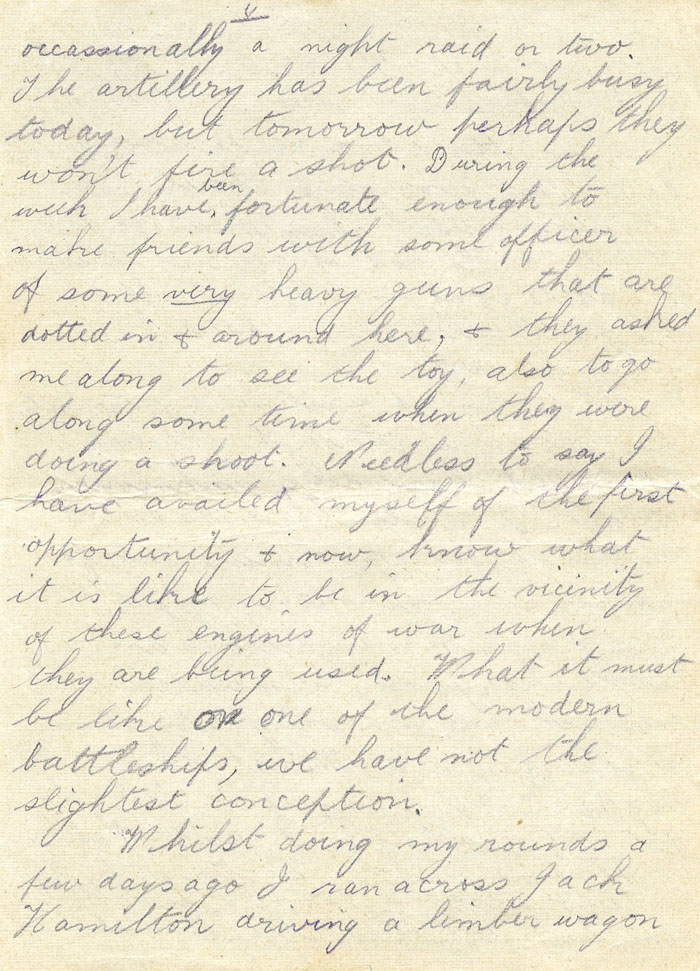 V
occassionally a night raid or two.
The artillery has been fairly busy
today, but tomorrow perhaps they
won't fire a shot. During the
week I have, been fortunate enough to
make friends with some officer
of some very heavy guns that are
dotted in & around here, & they asked
me along to see the toy, also to go
along some time when they were
doing a shoot. Needless to say I
have availed myself of the first
opportunity & now, know what
it is like to be in the vicinity
of these engines of war when
they are being used. What it must
be like on one of the modern
battleships, we have not the
slightest conception.
Whilst doing my rounds a
few days ago I ran across Jack
Hamilton driving a limber wagon